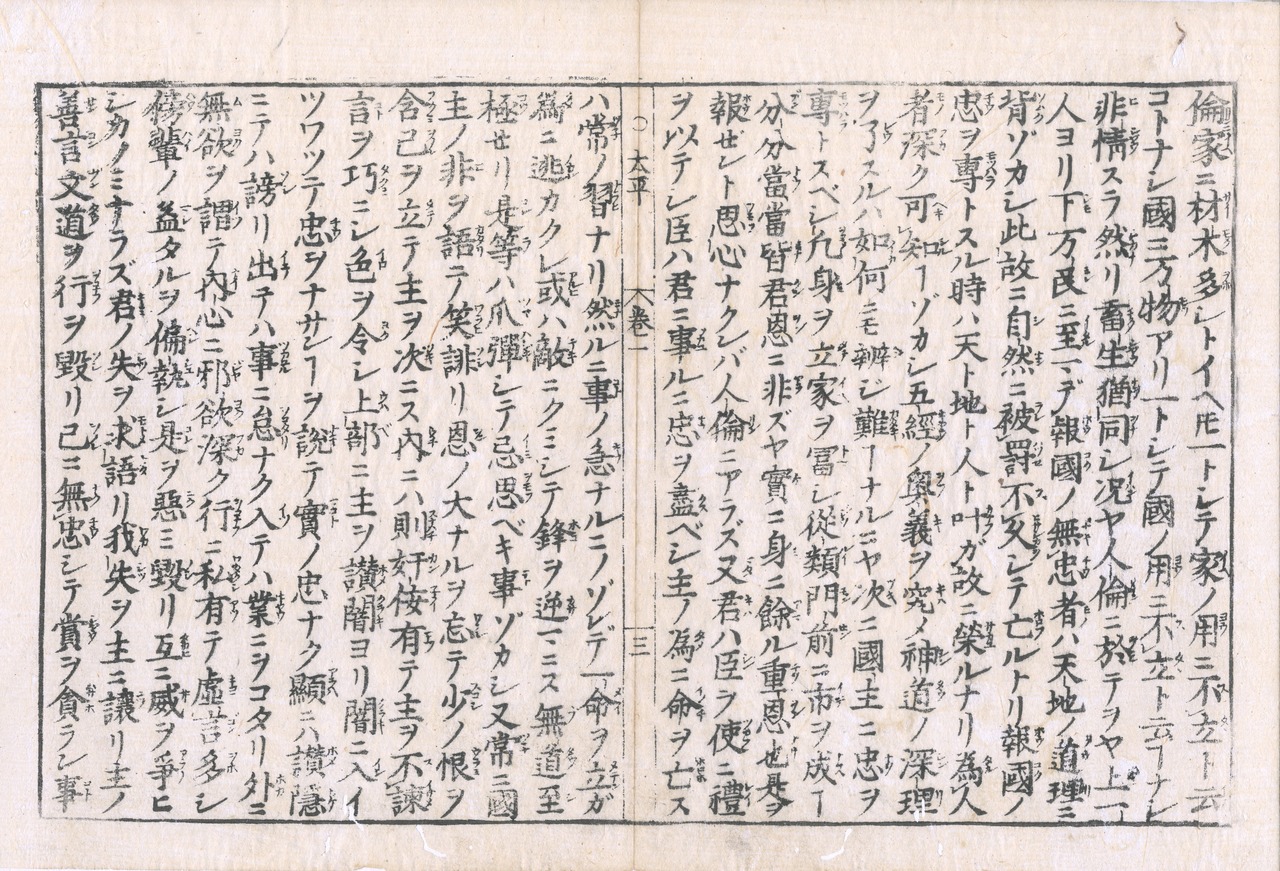 倫家ニ材木多シトイヘ𪜈一トシテ家ノ用ニ不立ト云
コトナシ國ニ万物アリ一トシテ國ノ用ニ不立ト云ヿナシ
非情スラ然リ畜生猶同シ况ヤ人倫ニ於テヲヤ上一
人ヨリ下万民ニ至マデ報國ノ無忠者ハ天地ノ道理ニ
背ゾカシ此故ニ自然ニ被罸不久シテ亡ルトリ報國ノ
忠ヲ專トスル時ハ天ト地ト人ト叶ガ故ニ榮ルナリ為人
者深ク可知ヿゾカシ五經ノ奥義ヲ究メ神道ノ深理
ヲ了スルハ如何ニモ辨ジ難ヿナルニヤ次ニ國主ニ忠ヲ
專トスベシ凡身ヲ立家ヲ冨シ從類門前ニ市ヲ成ヿ
分分當當皆君恩ニ非ズヤ實ニ身ニ餘ル重恩也是ヲ
報ゼント思心ナクンバ人倫ニアラズ又君ハ臣ヲ使ニ禮
ヲ以テシ臣ハ君ニ事ルニ忠ヲ盡ベシ主ノ為ニ命ヲ亡ス
○太平 卷一 三
ハ常ノ習ナリ然ルニ事ノ急ナルニノゾンデ一命ヲ立ガ
爲ニ逃カクレ或ハ敵ニクミシテ鋒ヲ逆マニス無道至
極せリ是等ハ爪彈シテ忌思ベキ事ゾカシ又常ニ國
主ノ非ヲ語テ笑誹リ恩ノ大ナルヲ忘テ少ノ恨ヲ
含己ヲ立テ主ヲ次ニス内ニハ則奸侫有テ主ヲ不諫
言ヲ巧ニシ色ヲ令シ上部ニ主ヲ讃闇ヨリ闇ニ入イ
ツワツテ忠ヲナサンヿヲ說テ實ノ忠ナク顯ニハ讃隱
ニテハ謗リ出テハ事ニ怠ナク入テハ業ニヲコタリ外ニ
無欲ヲ謂テ内心ニ邪欲深ク行ニ私有テ虛言多シ
傍輩ノ益タルヲ偏執シ是ヲ惡ミ毀リ互ニ威ヲ爭ヒ
シカノミナラズ君ノ失ヲ求語リ我失ヲ主ニ讓リ主ノ
善言文道ヲ行ヲ毀リ己ニ無忠シテ賞ヲ貪ラン事